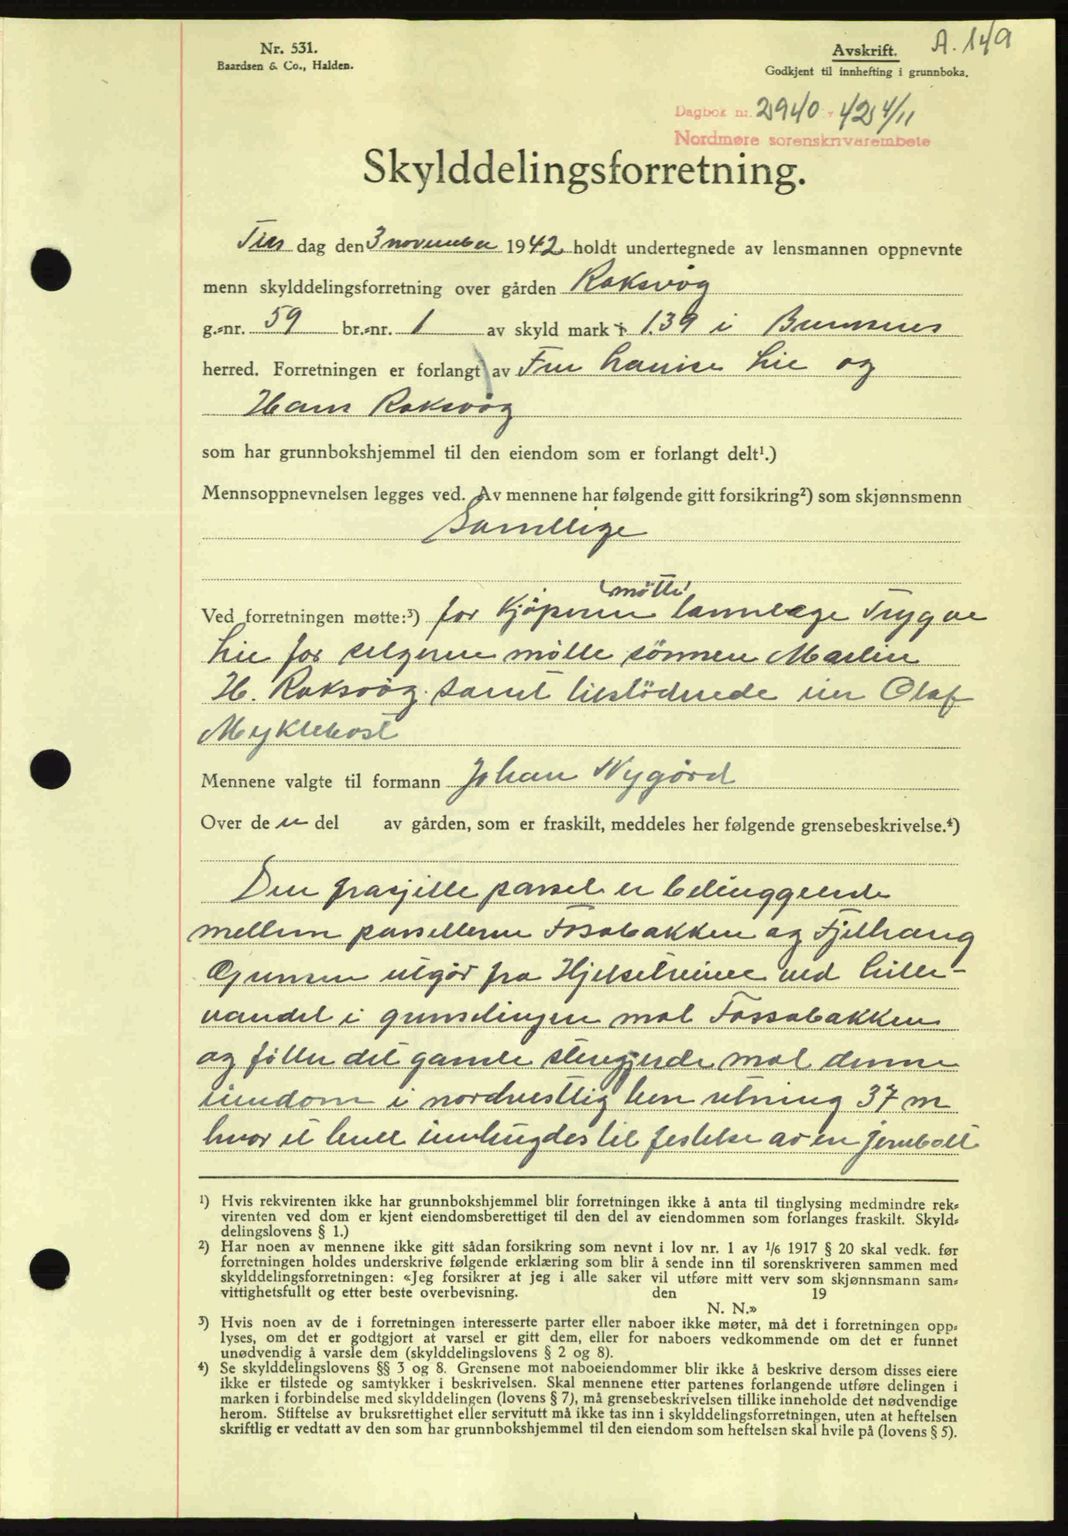 Nr. 531.
Baardsen & Co., Halden.
Avskrift.
A. 149
Godkjent til innhefting i grunnboka.
Dagbok nr. 2940 - 42 4/11
Nordmøre sorenskriverembete
Skylddelingsforretning.
Tirs dag den 3 november 1942 holdt undertegnede av lensmannen oppnevnte
menn skylddelingsforretning over gården Roksvåg
g.-nr. 59 br.-nr. 1 av skyld mark 139 i Bremsnes
herred. Forretningen er forlangt av Fru Lauise Lie og
Hans Roksvåg
som har grunnbokshjemmel til den eiendom som er forlangt delt¹.)
Mennsoppnevnelsen legges ved. Av mennene har følgende gitt forsikring²) som skjønnsmenn
Samtlige
møtte
Ved forretningen møtte:³) for kjøperen tannlege Trygve
Lie for selgerne møtte sønnen Martin
H. Roksvåg samt tilstødende eier Olaf
Myklebost
Mennene valgte til formann Johan Nygård
Over de n del av gården, som er fraskilt, meddeles her følgende grensebeskrivelse.⁴)
Den fraskilte parsel er beliggende
mellem parsellerne Fossabakken og Fjeltvang
Grensen utgår fra ved Lille-
vandet i grenselinjen mot Fossabakken
og følter det gamle stengjerde mot denne
eiendom i nordvestlig hen retning 37 m
hvor et hull innhugdes til festelse av en jernbolt
¹) Hvis rekvirenten ikke har grunnbokshjemmel blir forretningen ikke å anta til tinglysing medmindre rek-
virenten ved dom er kjent eiendomsberettiget til den del av eiendommen som forlanges fraskilt. Skyld-
delingslovens § 1.)
²) Har noen av mennene ikke gitt sådan forsikring som nevnt i lov nr. 1 av 1/6 1917 § 20 skal vedk. før
forretningen holdes underskrive følgende erklæring som blir å sende inn til sorenskriveren sammen med
skylddelingsforretningen: «Jeg forsikrer at jeg i alle saker vil utføre mitt verv som skjønnsmann sam-
vittighetsfullt og etter beste overbevisning. den 19
N. N.»
³) Hvis noen av de i forretningen interesserte parter eller naboer ikke møter, må det i forretningen opp-
lyses, om det er godtgjort at varsel er gitt dem, eller for naboers vedkommende om det er funnet
unødvendig å varsle dem (skylddelingslovens § 2 og 8).
⁴) Se skylddelingslovens §§ 3 og 8. Grensene mot naboeiendommer blir ikke å beskrive dersom disses eiere
ikke er tilstede og samtykker i beskrivelsen. Skal mennene etter partenes forlangende utføre delingen i
marken i forbindelse med skylddelingen (lovens § 7), må grensebeskrivelsen tillike inneholde det nødvendige
herom. Stiftelse av bruksrettighet eller servitutt må ikke tas inn i skylddelingsforretningen, uten at heftelsen
skriftlig er vedtatt av den som har grunnbokshjemmel til den eiendom som heftelsen skal hvile på (lovens § 5).